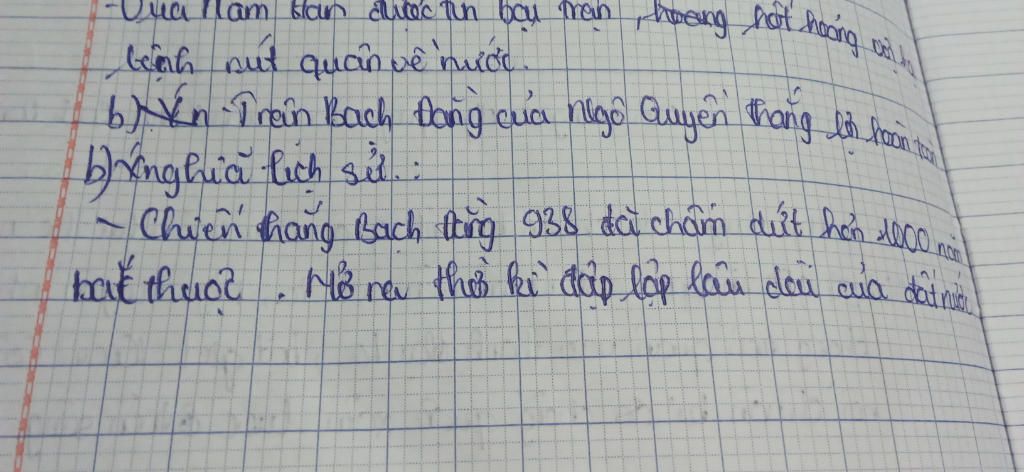 -Vua Nam Hán được tin bại trận, hoang hốt hoảng vội
lệnh rút quân về nước.
b) Trận Bạch Đằng của Ngô Quyền thắng lợi hoàn toàn
b) Ý nghĩa lịch sử:
- Chiến thắng Bạch Đằng 938 đã chấm dứt hơn 1000 năm
bắt thuộc. Mở ra thời kì độp lập lâu dài của đất nước